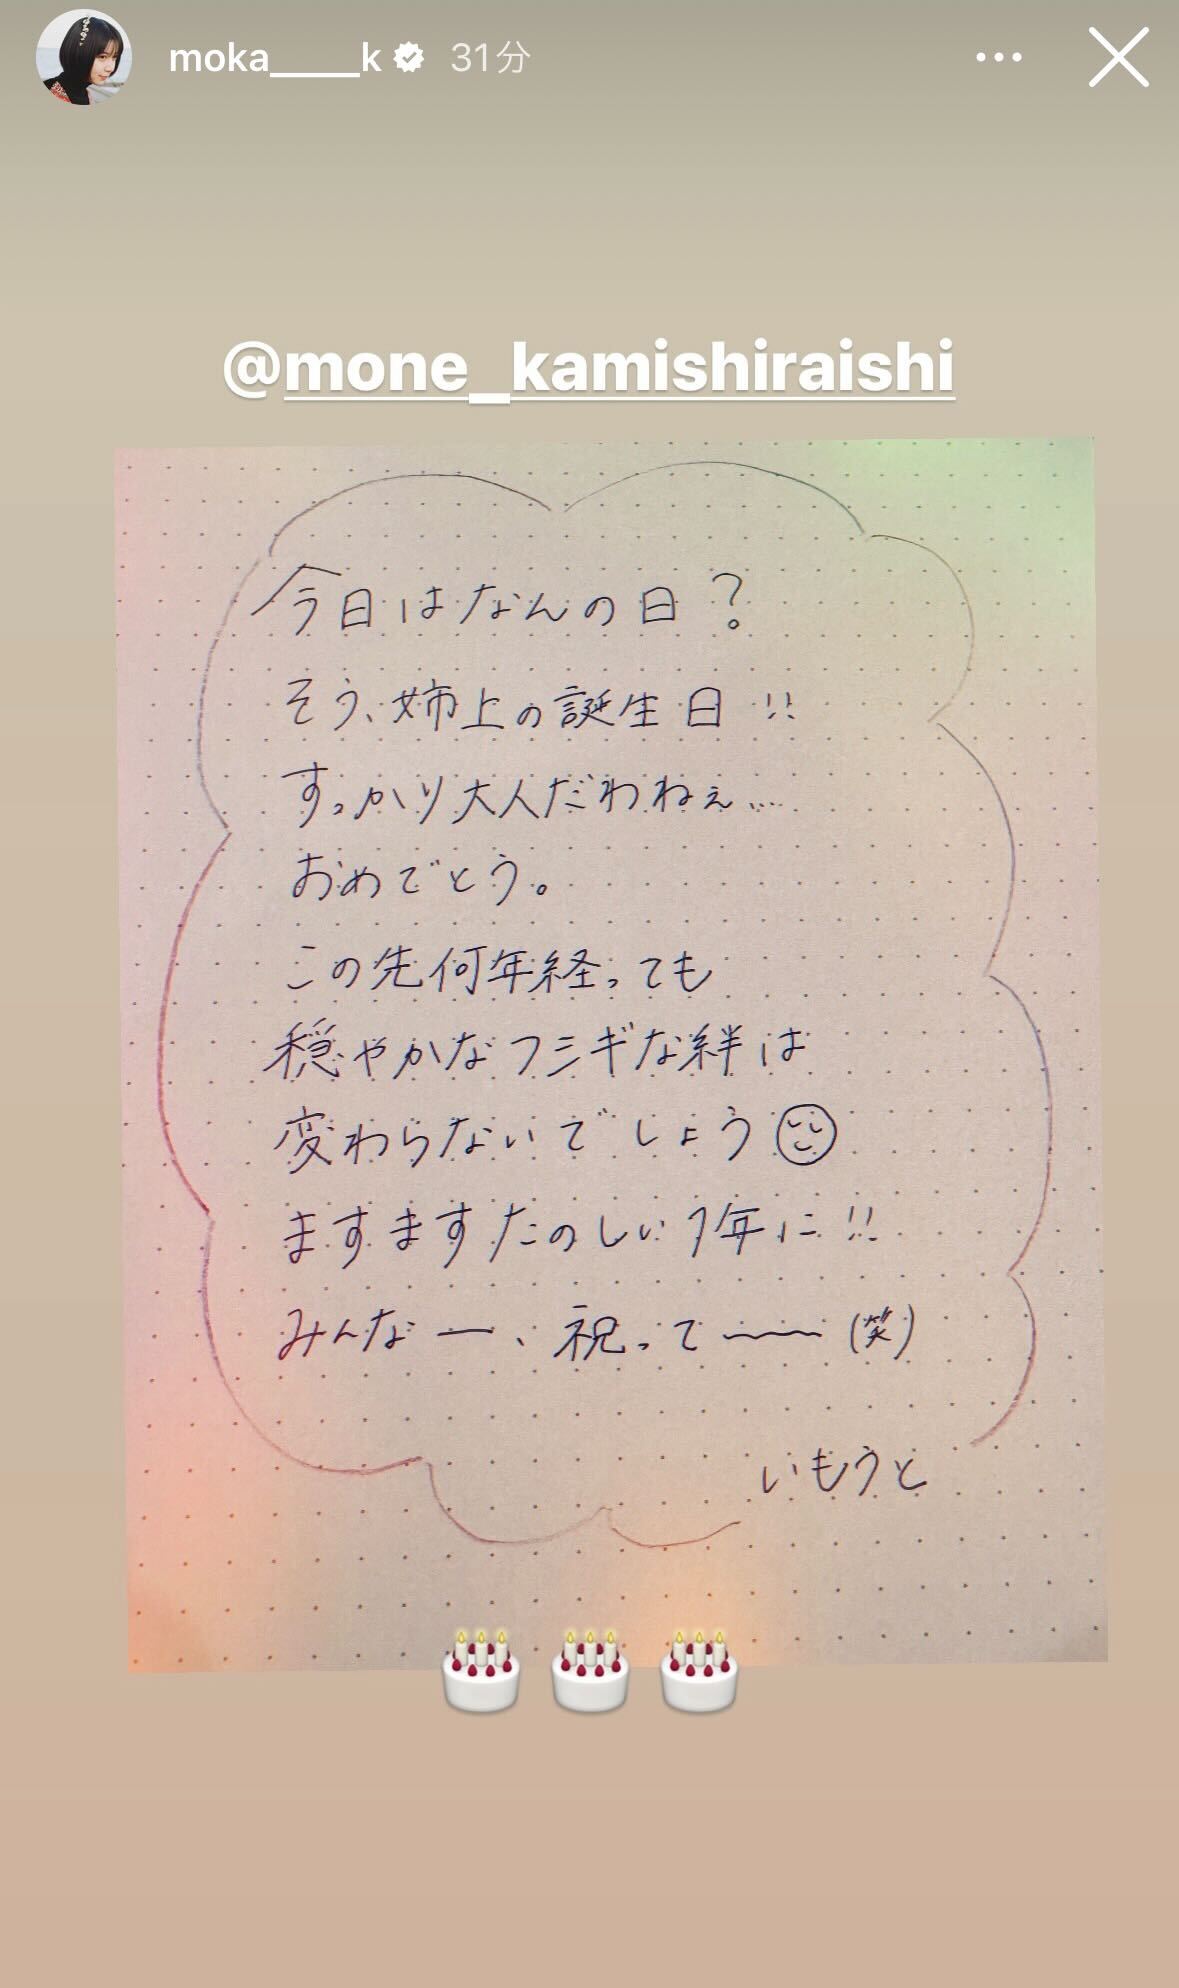 moka_____k 31分
@mone_kamishiraishi
今日はなんの日？
そう、姉上の誕生日!!
すっかり大人だわねぇ…
おめでとう。
この先何年経っても
穏やかなフシギな絆は
変わらないでしょう
ますますたのしい1年に!!
みんなー、祝って〜(笑)
いもうと